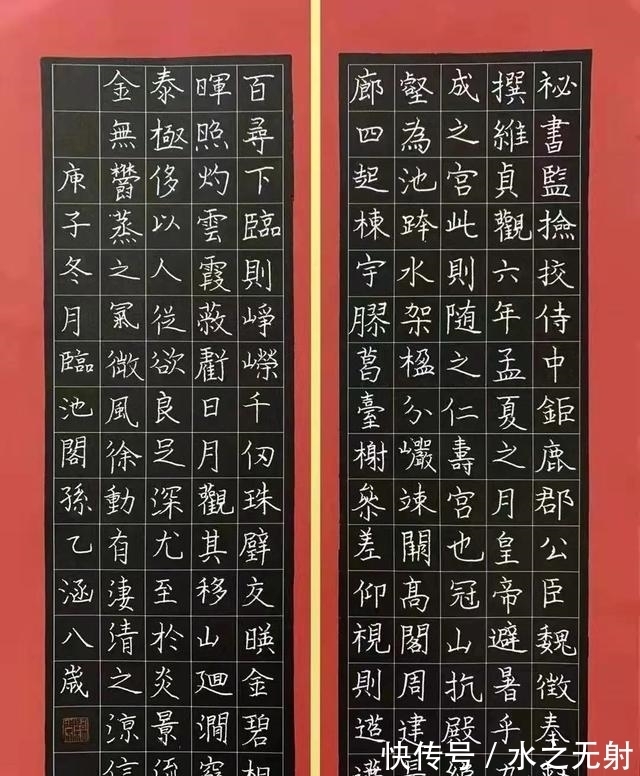 秘書監撿挍侍中鉅鹿郡公臣魏徵奉
撰維貞觀六年孟夏之月皇帝避暑乎
成之宮此則随之仁壽宮也冠山抗殿
壑為池跨水架楹分巖竦闕高閣周建
廊四起棟宇膠葛臺榭參差仰視則迢
百尋下臨則崢嶸千仞珠壁交暎金碧相
暉照灼雲霞蔽虧日月觀其移山迴澗窮
泰極侈以人從欲良足深尤至於炎景流
金無鬱蒸之氣微風徐動有淒清之涼信
庚子冬月臨池閣孫乙涵八歲
快传号/水之无射